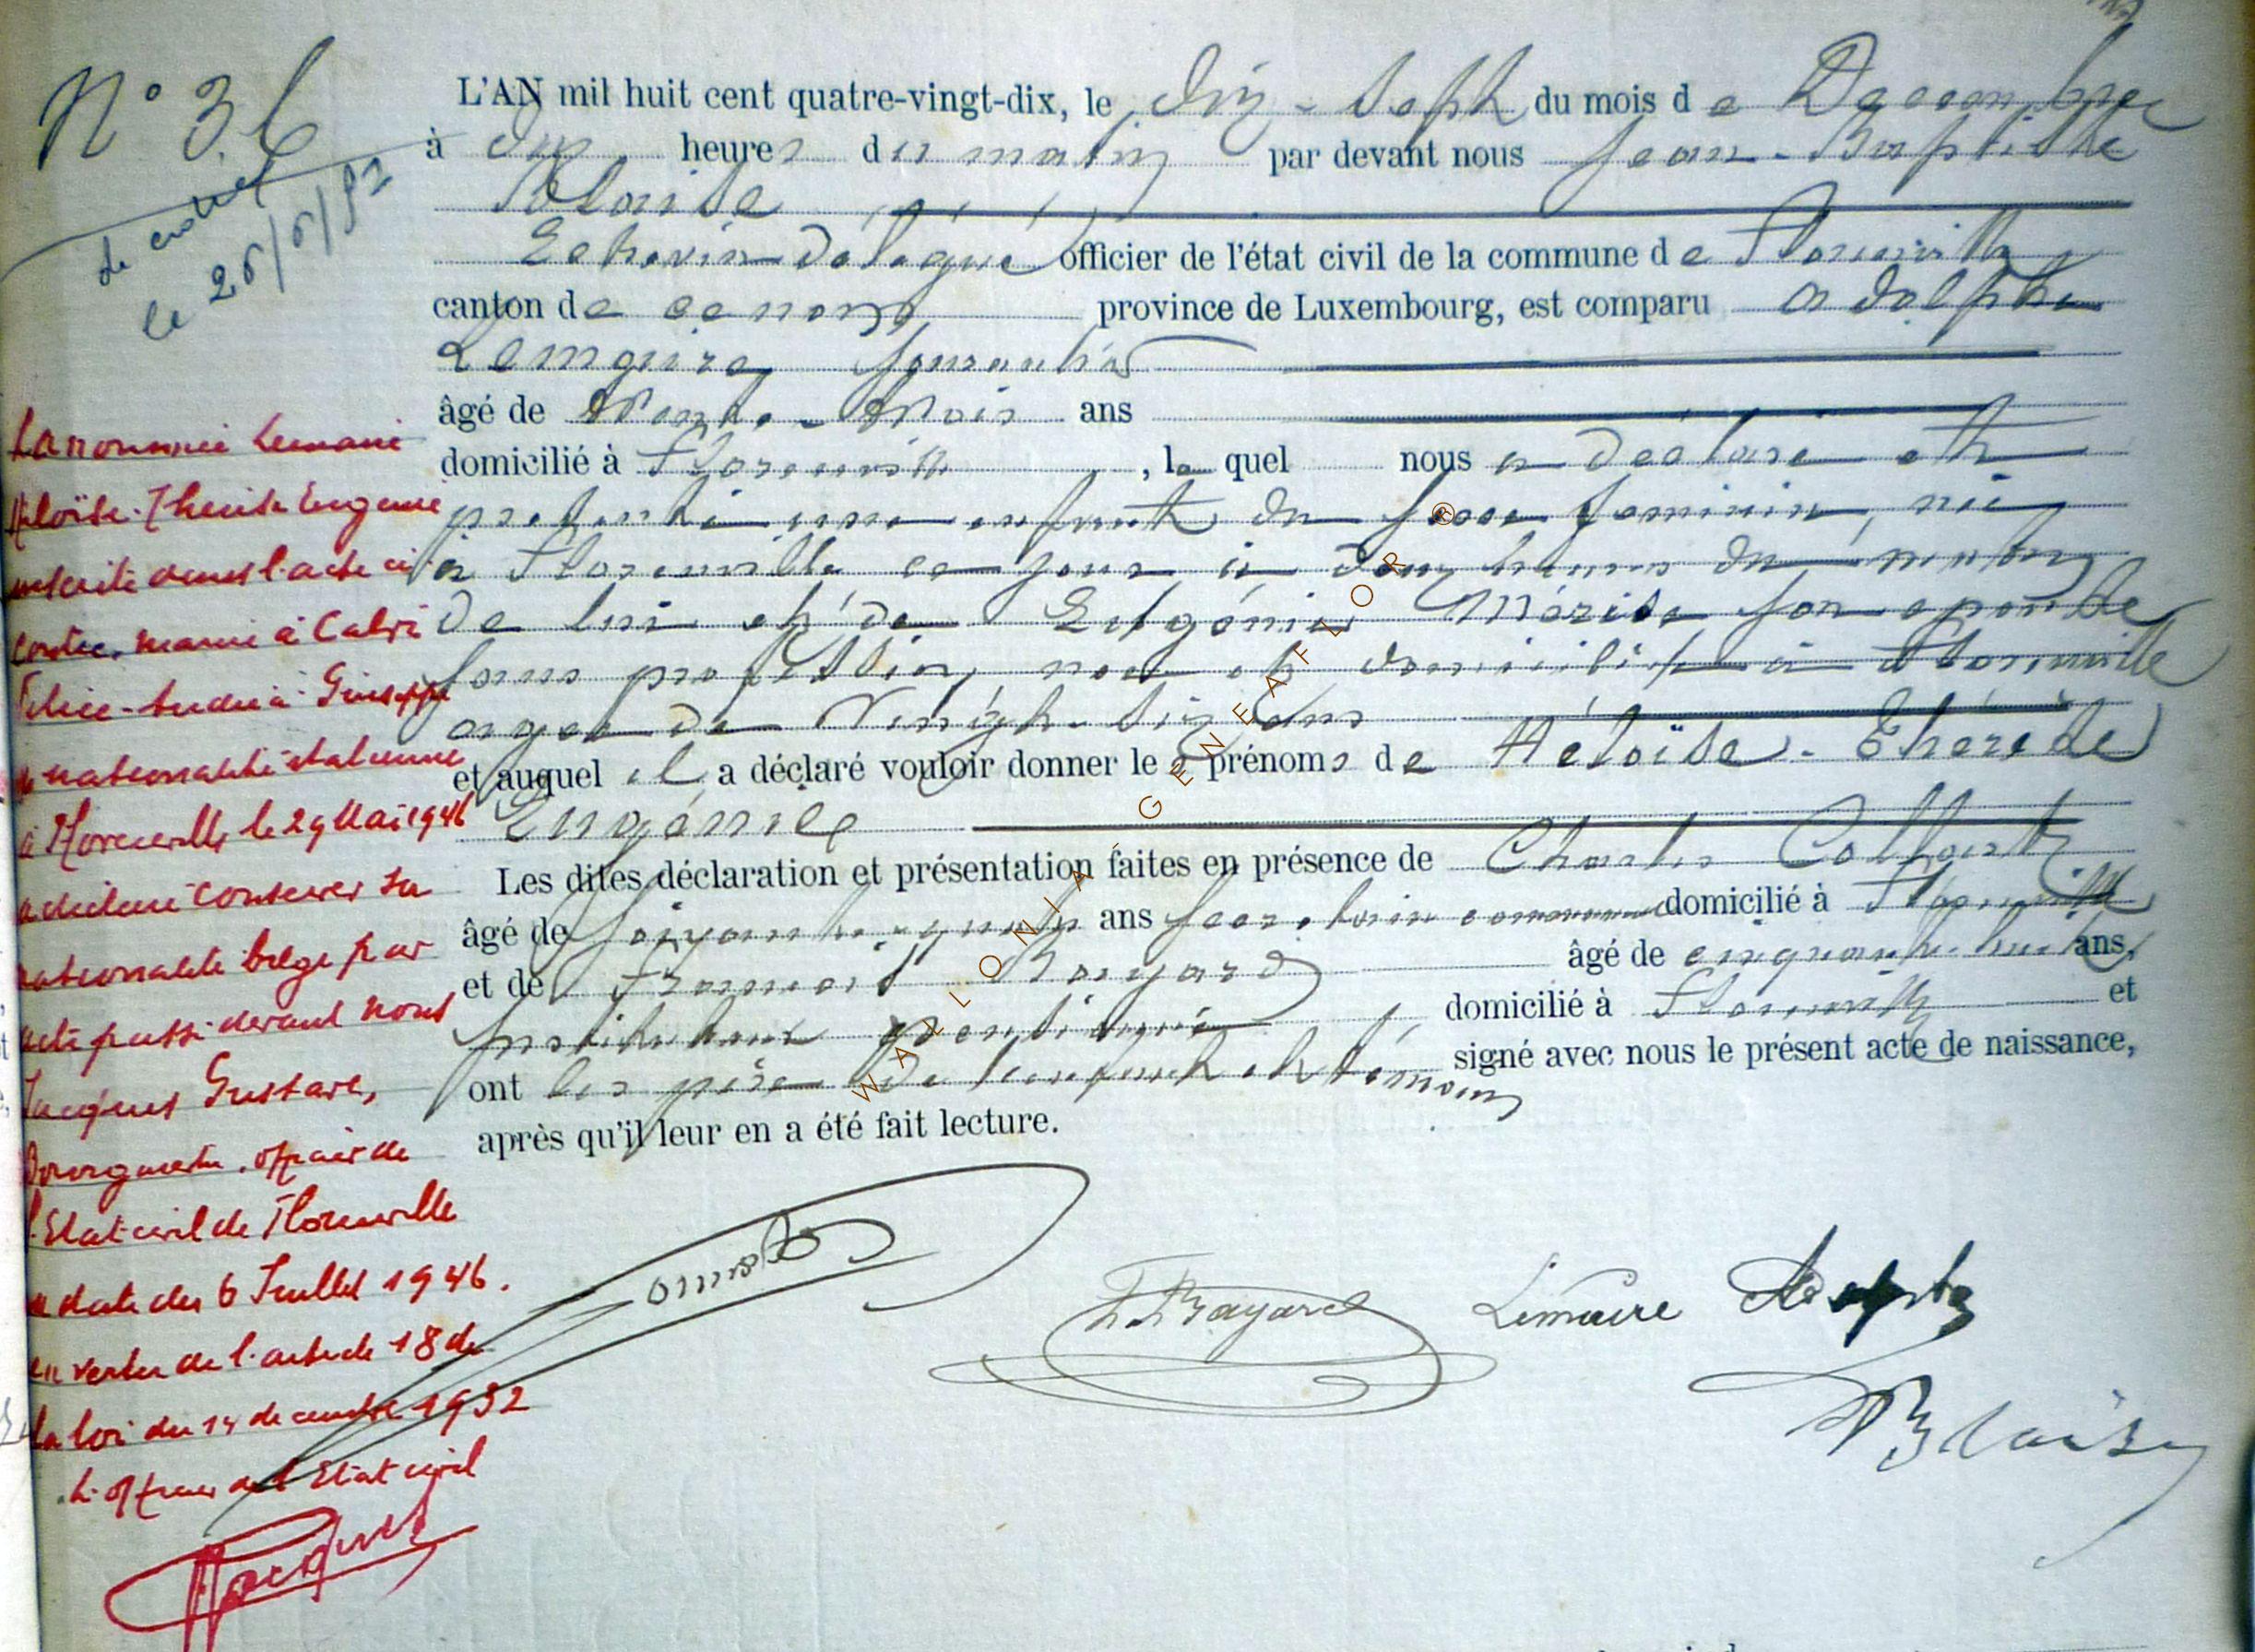 N° 36
décédée
le 26/6/82
L'AN mil huit cent quatre-vingt-dix, le dix-sept du mois de Décembre
à dix heures du matin par devant nous Jean-Baptiste
Blaise
Echevin délégué officier de l'état civil de la commune de Florenville
canton de ce nom province de Luxembourg, est comparu Adolphe
Lemaire
âgé de trente-trois ans
domicilié à Florenville, lequel nous a déclaré et
présenté une enfant du sexe féminin, née
à Florenville ce jour à deux heures du matin
de lui et de Eugénie son épouse
sans profession, née et domiciliée à Florenville
agée de Vingt-six ans
et auquel il a déclaré vouloir donner les prénoms de Héloïse-Thérèse
Eugénie
Les dites déclaration et présentation faites en présence de Charles
âgé de soixante-quatre ans secrétaire communal domicilié à Florenville
et de François Bayard âgé de cinquante-huit ans,
Instituteur pensionné domicilié à Florenville et
ont les père de l'enfant et témoins signé avec nous le présent acte de naissance,
après qu'il leur en a été fait lecture.
La nommée Lemaire
Héloïse-Thérèse Eugénie
inscrite dans l'acte ci
contre, mariée à Calvi
Felice-Andréa-Giuseppe
de nationalité italienne
à Florenville, le 29 Mai 1946
a déclaré conserver sa
nationalité belge par
acte passé devant nous
Jacques Gustave,
Bourgmestre, officier de
l'Etat civil de Florenville
en date du 6 Juillet 1946.
en vertu de l'article 18 de
la loi du 14 décembre 1932
L'officier de l'Etat civil
Jacques
F. Bayard
Lemaire Adolphe
Blaise
WALLONIA GENEAFLOR ®